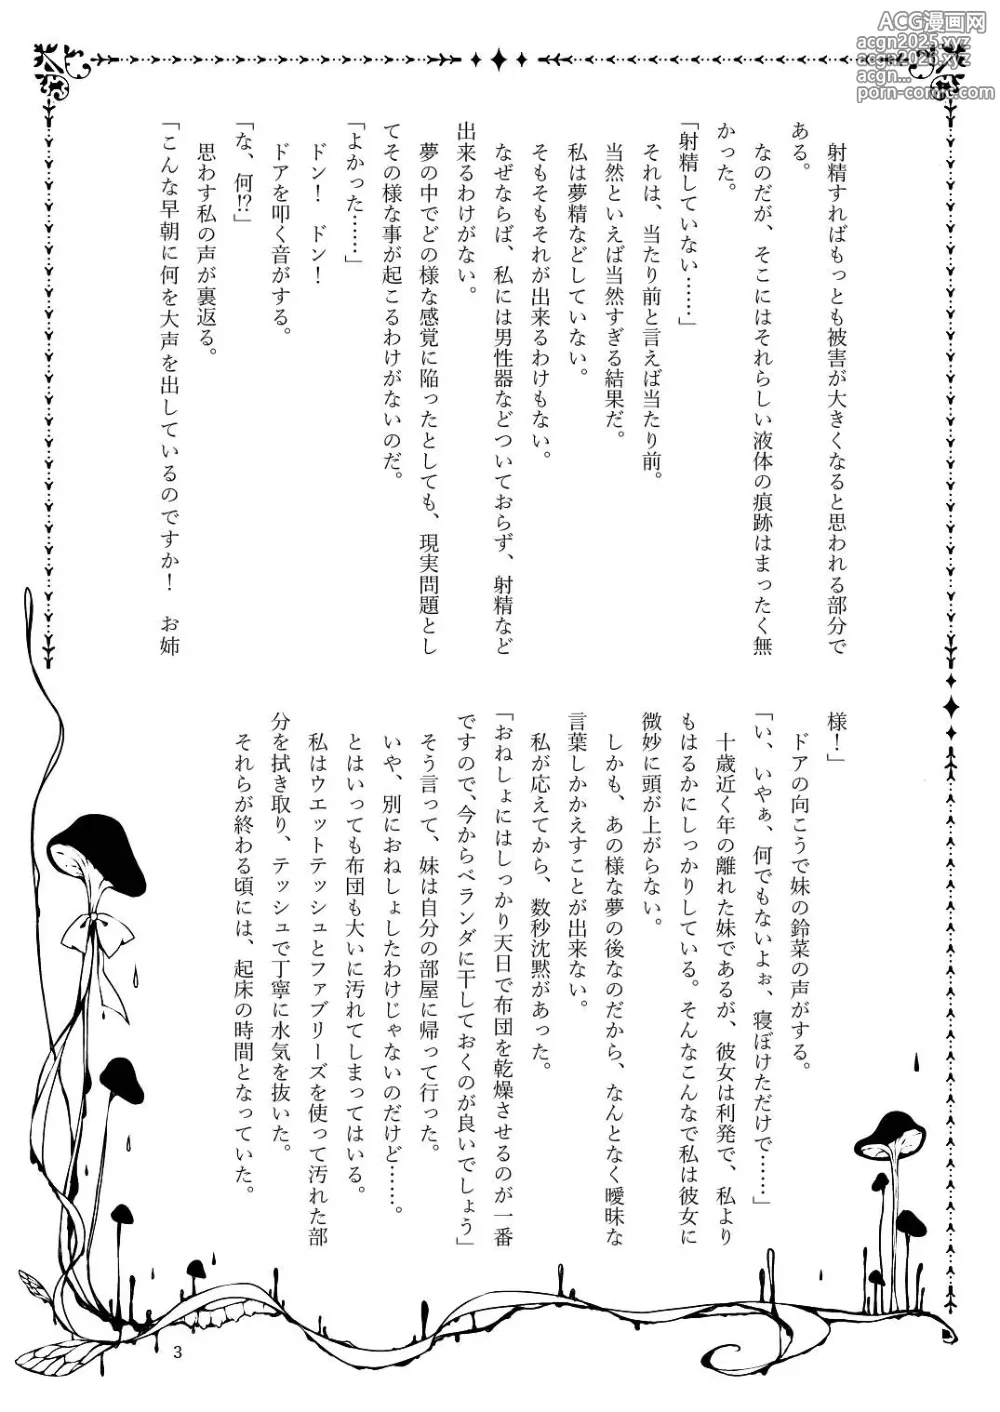 ACG漫画网
acgn2025.xyz
acgn2026.xyz
acgn...
porn-comic.com
　射精すればもっとも被害が大きくなると思われる部分で
ある。
　なのだが、そこにはそれらしい液体の痕跡はまったく無
かった。
「射精していない……」
　それは、当たり前と言えば当たり前。
　当然といえば当然すぎる結果だ。
　私は夢精などしていない。
　そもそもそれが出来るわけもない。
　なぜならば、私には男性器などついておらず、射精など
出来るわけがない。
　夢の中でどの様な感覚に陥ったとしても、現実問題とし
てその様な事が起こるわけがないのだ。
「よかった……」
　ドン！　ドン！
　ドアを叩く音がする。
「な、何!?」
　思わす私の声が裏返る。
「こんな早朝に何を大声を出しているのですか！　お姉
様！」
　ドアの向こうで妹の鈴菜の声がする。
「い、いやぁ、何でもないよぉ、寝ぼけただけで……」
　十歳近く年の離れた妹であるが、彼女は利発で、私より
もはるかにしっかりしている。そんなこんなで私は彼女に
微妙に頭が上がらない。
　しかも、あの様な夢の後なのだから、なんとなく曖昧な
言葉しかかえすことが出来ない。
　私が応えてから、数秒沈黙があった。
「おねしょにはしっかり天日で布団を乾燥させるのが一番
ですので、今からベランダに干しておくのが良いでしょう」
　そう言って、妹は自分の部屋に帰って行った。
　いや、別におねしょしたわけじゃないのだけど……。
　とはいっても布団も大いに汚れてしまってはいる。
　私はウエットテッシュとファブリーズを使って汚れた部
分を拭き取り、テッシュで丁寧に水気を抜いた。
　それらが終わる頃には、起床の時間となっていた。
3